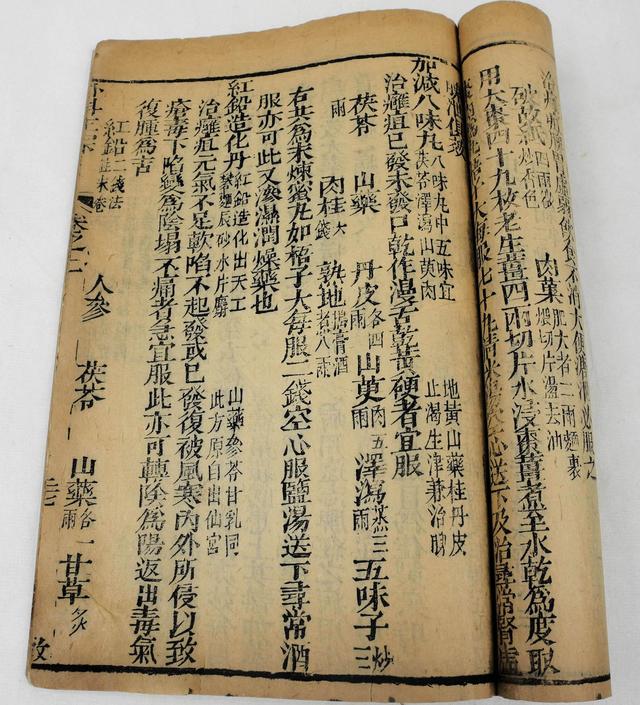 破故紙
四兩
炒香色
肉菓
肥大者二兩麵裹
煨切片湯去油
用大棗四十九枚老生薑四兩切片水浸棗薑煮至水乾為度取
加減八味丸
八味丸中五味宜
茯苓澤瀉山萸肉
地黃山藥桂丹皮
止渴生津兼治脾
治癰疽已發未發口乾作渴舌乾黃硬者宜服
茯苓
山藥
丹皮
各四兩
山萸
肉五兩
澤瀉
蒸三
五味子
三炒
兩
肉桂
六錢
熟地
搗膏酒煮八兩
右共為末煉蜜丸如梧子大每服二錢空心服鹽湯送下尋常酒
服亦可此又滲濕潤燥藥也
紅鉛造化丹
紅鉛造化出天工
麝辰砂水片
山藥參苓甘乳同
此方原自出仙宮
治癰疽元氣不足軟陷不起發或已發復被風寒內外所侵以致
瘡毒下陷變為陰塌不痛者急宜服此亦可轉陰為陽返出毒氣
復腫為吉
紅鉛
二錢法
人參
茯苓
山藥
各一兩
甘草
炙
外科正宗
卷之二